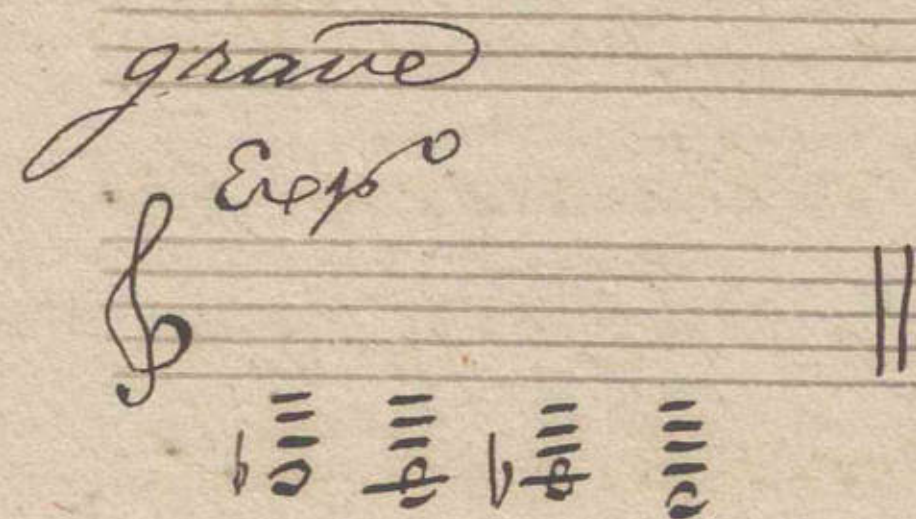 grave
Exp°